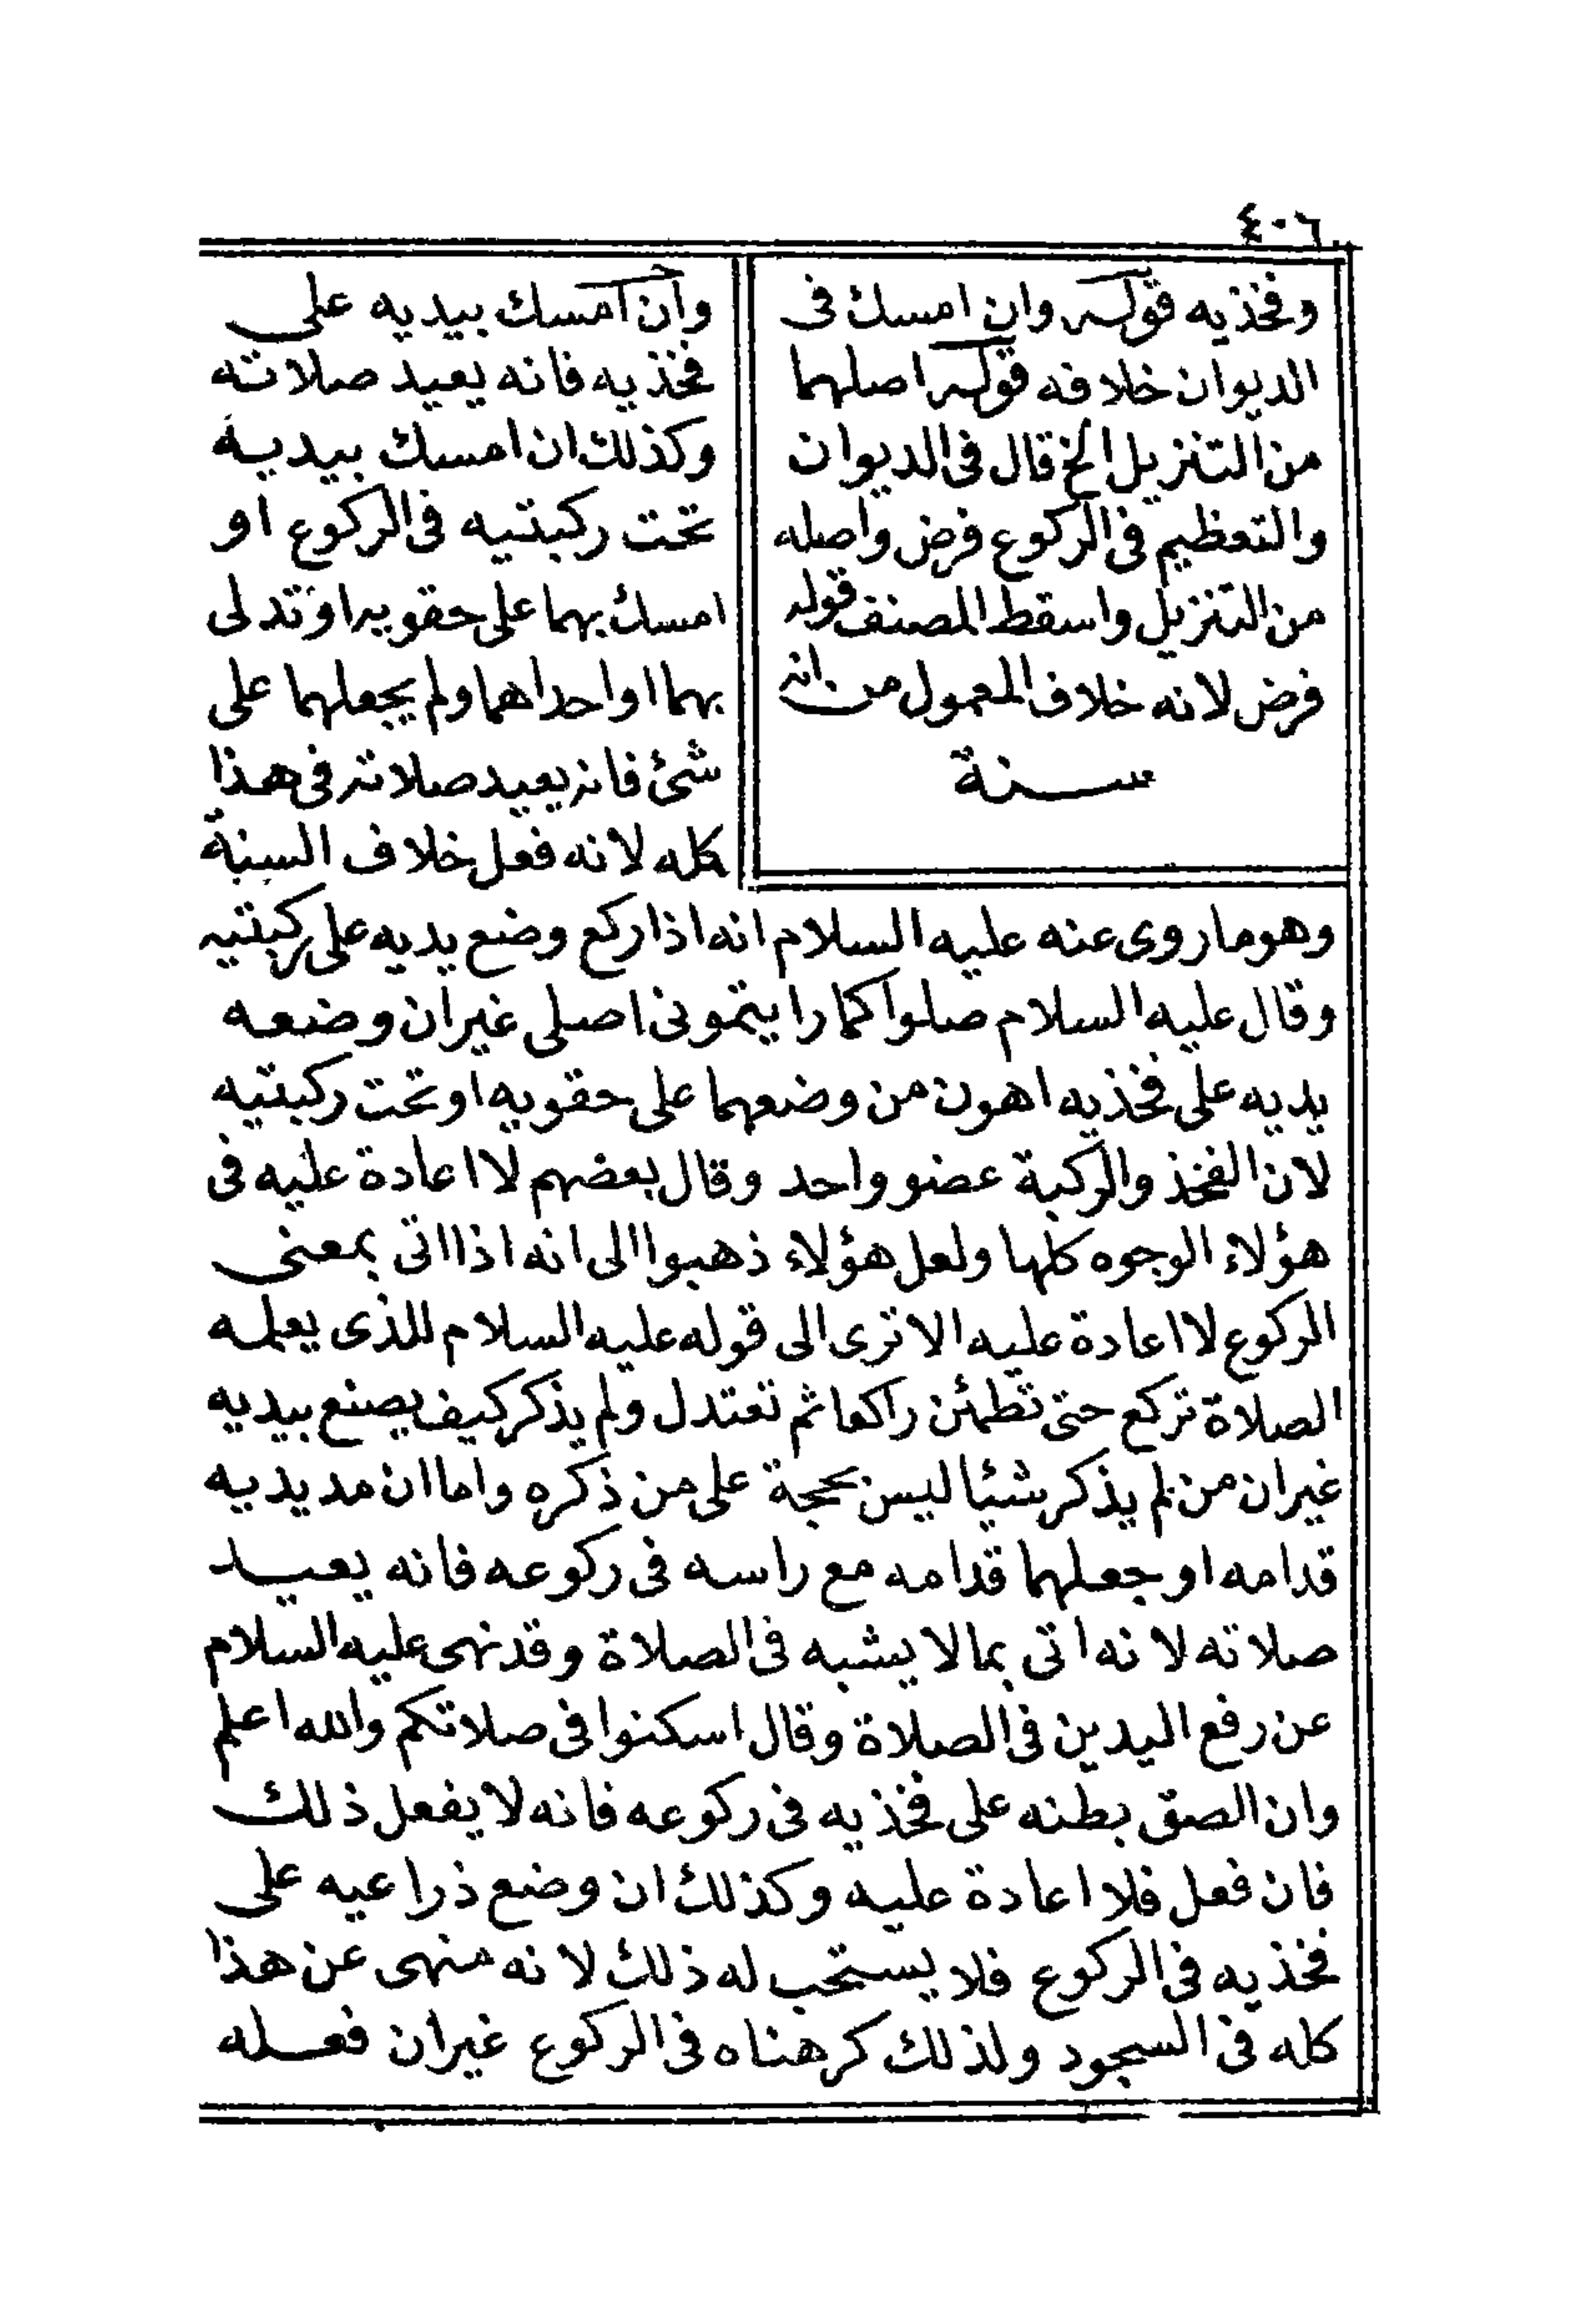 ٤٠٦
وفخذيه قوله وان امسك فى
الديوان خلافه قوله اصلهما
من التنزيل الخ قال فى الديوان
والتعظيم فى الركوع فرض واصله
من التنزيل واسقط المصنف قوله
فرض لانه خلاف المعمول من انه
سنة
وان امسك بيديه على
فخذيه فانه يعيد صلاته
وكذلك ان امسك بيديه
تحت ركبتيه فى الركوع او
امسك بهما على حقويه او تدلى
بهما او احداهما ولم يجعلهما على
شئ فانه يعيد صلاته فى هذا
كله لانه فعل خلاف السنة
وهو ما روى عنه عليه السلام انه اذا ركع وضع يديه على ركبتيه
وقال عليه السلام صلوا كما رايتمونى اصلى غير ان وضعه
يديه على فخذيه اهون من وضعهما على حقويه او تحت ركبتيه
لان الفخذ والركبة عضو واحد وقال بعضهم لا اعادة عليه فى
هؤلاء الوجوه كلها ولعل هؤلاء ذهبوا الى انه اذا اتى بمعنى
الركوع لا اعادة عليه الا ترى الى قوله عليه السلام للذى يعلمه
الصلاة تركع حتى تطمئن راكعا ثم تعتدل ولم يذكر كيف يصنع بيديه
غير ان من لم يذكر شيئا ليس بحجة على من ذكره واما ان مد يديه
قدامه او جعلهما قدامه مع راسه فى ركوعه فانه يعيد
صلاته لانه اتى بما لا يشبه فى الصلاة وقد نهى عليه السلام
عن رفع اليدين فى الصلاة وقال اسكنوا فى صلاتكم والله اعلم
وان الصق بطنه على فخذيه فى ركوعه فانه لا يفعل ذلك
فان فعل فلا اعادة عليه وكذلك ان وضع ذراعيه على
فخذيه فى الركوع فلا يستحب له ذلك لانه منهى عن هذا
كله فى السجود ولذلك كرهناه فى الركوع غير ان فعله